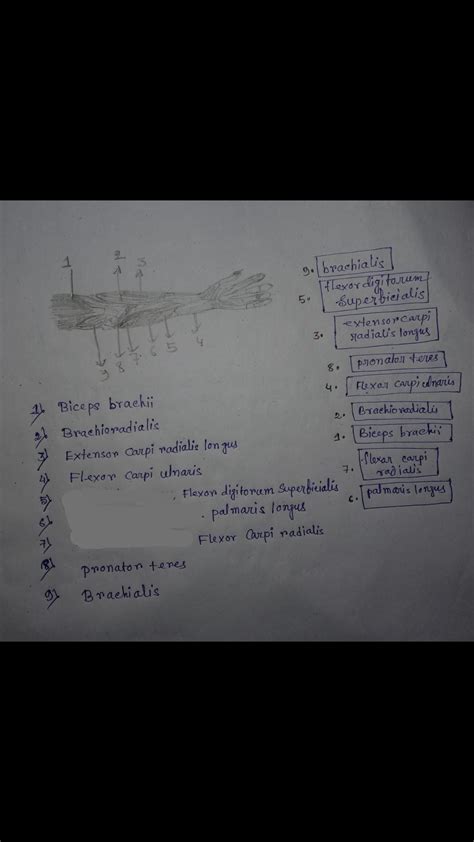 1
2
3
9
8
7
6
5
4
9. brachialis
5. flexor digitorum
superbicialis
3. extensor carpi
radialis longus
8. pronator teres
4. Flexor carpi ulnaris
2. Brachioradialis
1. Biceps brachii
7. flexar carpi
radialis
6. palmaris longus
1). Biceps brachii
2). Brachioradialis
3) Extensor carpi radialis longus
4) Flexor carpi ulnaris
5) . Flexor digitorum Superbicialis
6) . palmaris longus
7) Flexor Carpi radialis
8) pronator teres
9) Brachialis